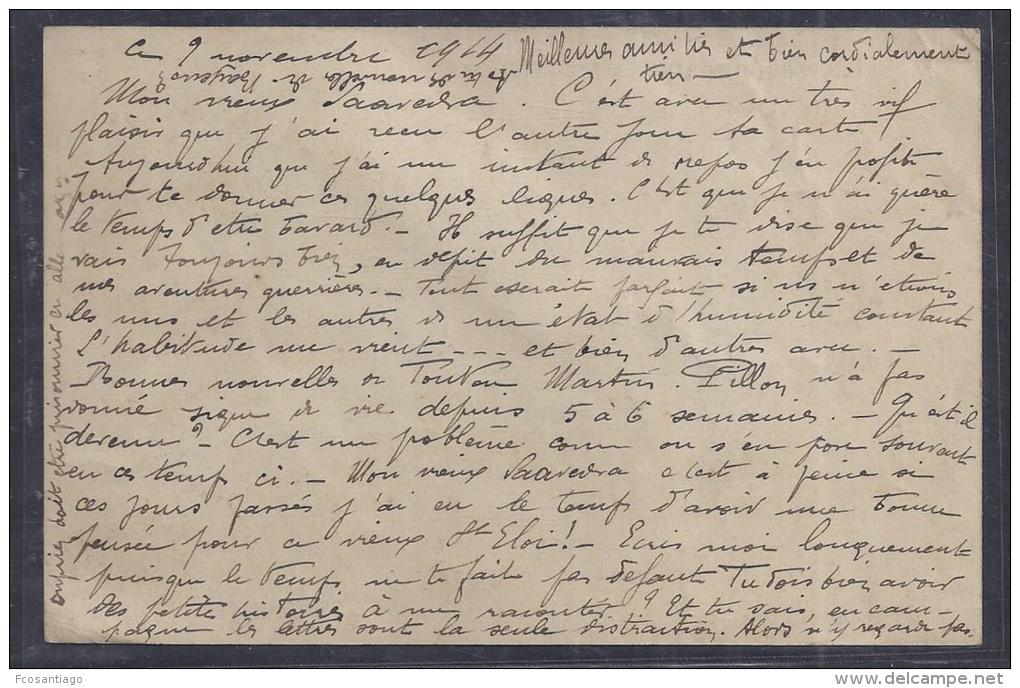 Ce 9 novembre 1914
Meilleures amitiés et bien cordialement
tien —
Mon vieux Saavedra. C'est avec un très vif
plaisir que j'ai reçu l'autre jour ta carte
Aujourd'hui que j'ai un instant de repos j'en profite
pour te donner ces quelques lignes. C'est que je n'ai guère
le temps d'être bavard. — Il suffit que je te dise que je
vais toujours bien, en dépit du mauvais temps et de
mes aventures guerrières. — Tout serait parfait si ns n'étions
les uns et les autres ds un état d'humidité constant
L'habitude me vient --- et bien d'autres avec. —
Bonnes nouvelles de Martin. Pillon n'a pas
donné signe de vie depuis 5 à 6 semaines. — Qu'est il
devenu? — C'est un problème comme on s'en pose souvent
en ces temps ci. — Mon vieux Saavedra c'est à peine si
ces jours passés j'ai eu le temps d'avoir une bonne
pensée pour ce vieux St Eloi! — Ecris moi longuement
puisque le temps ne te fait pas défaut Tu dois bien avoir
des petites histoires à me raconter? Et tu sais, en cam-
pagne les lettres sont la seule distraction. Alors n'y regarde pas
doit être prisonnier en alle
FCosantiago